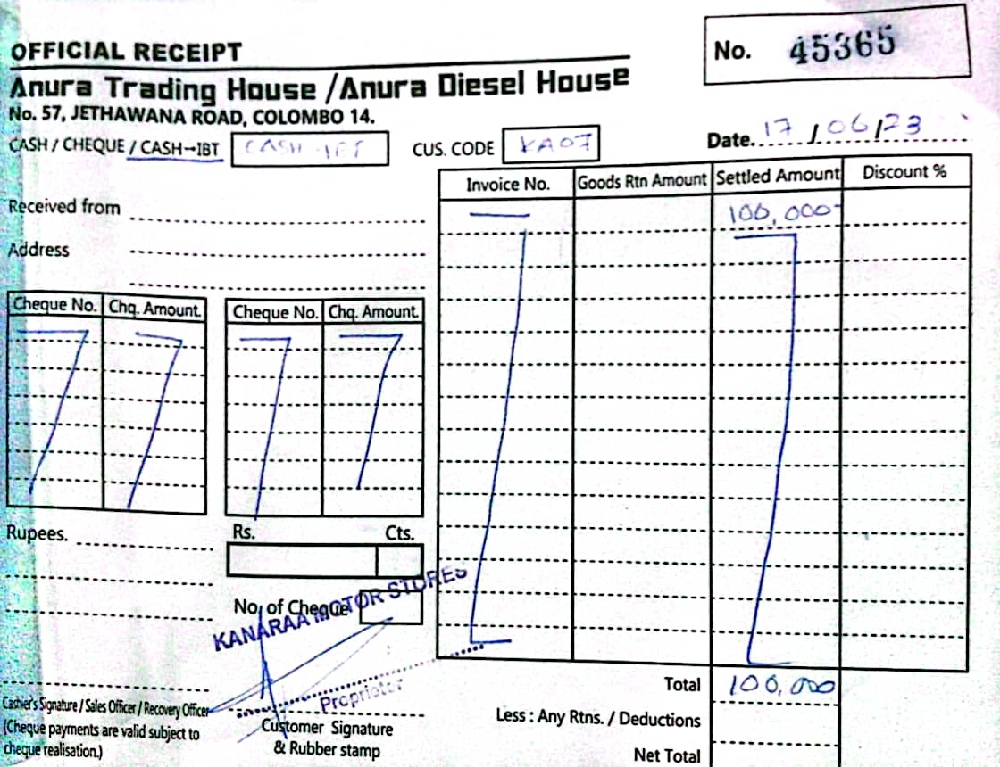 OFFICIAL RECEIPT
No. 45365
Anura Trading House /Anura Diesel House
No. 57, JETHAWANA ROAD, COLOMBO 14.
CASH / CHEQUE / CASH-IBT CASH-IBT CUS. CODE KA07 Date. 17/06/23
Invoice No. Goods Rtn Amount Settled Amount Discount %
Received from
100,000
Address
Cheque No. Chq. Amount. Cheque No. Chq. Amount.
Rupees. Rs. Cts.
No. of Cheque
KANARAA MOTOR STORES
Proprietor
Total 100,000
Cashier's Signature / Sales Officer / Recovery Officer
Less : Any Rtns. / Deductions
(Cheque payments are valid subject to
cheque realisation.)
Customer Signature
& Rubber stamp
Net Total